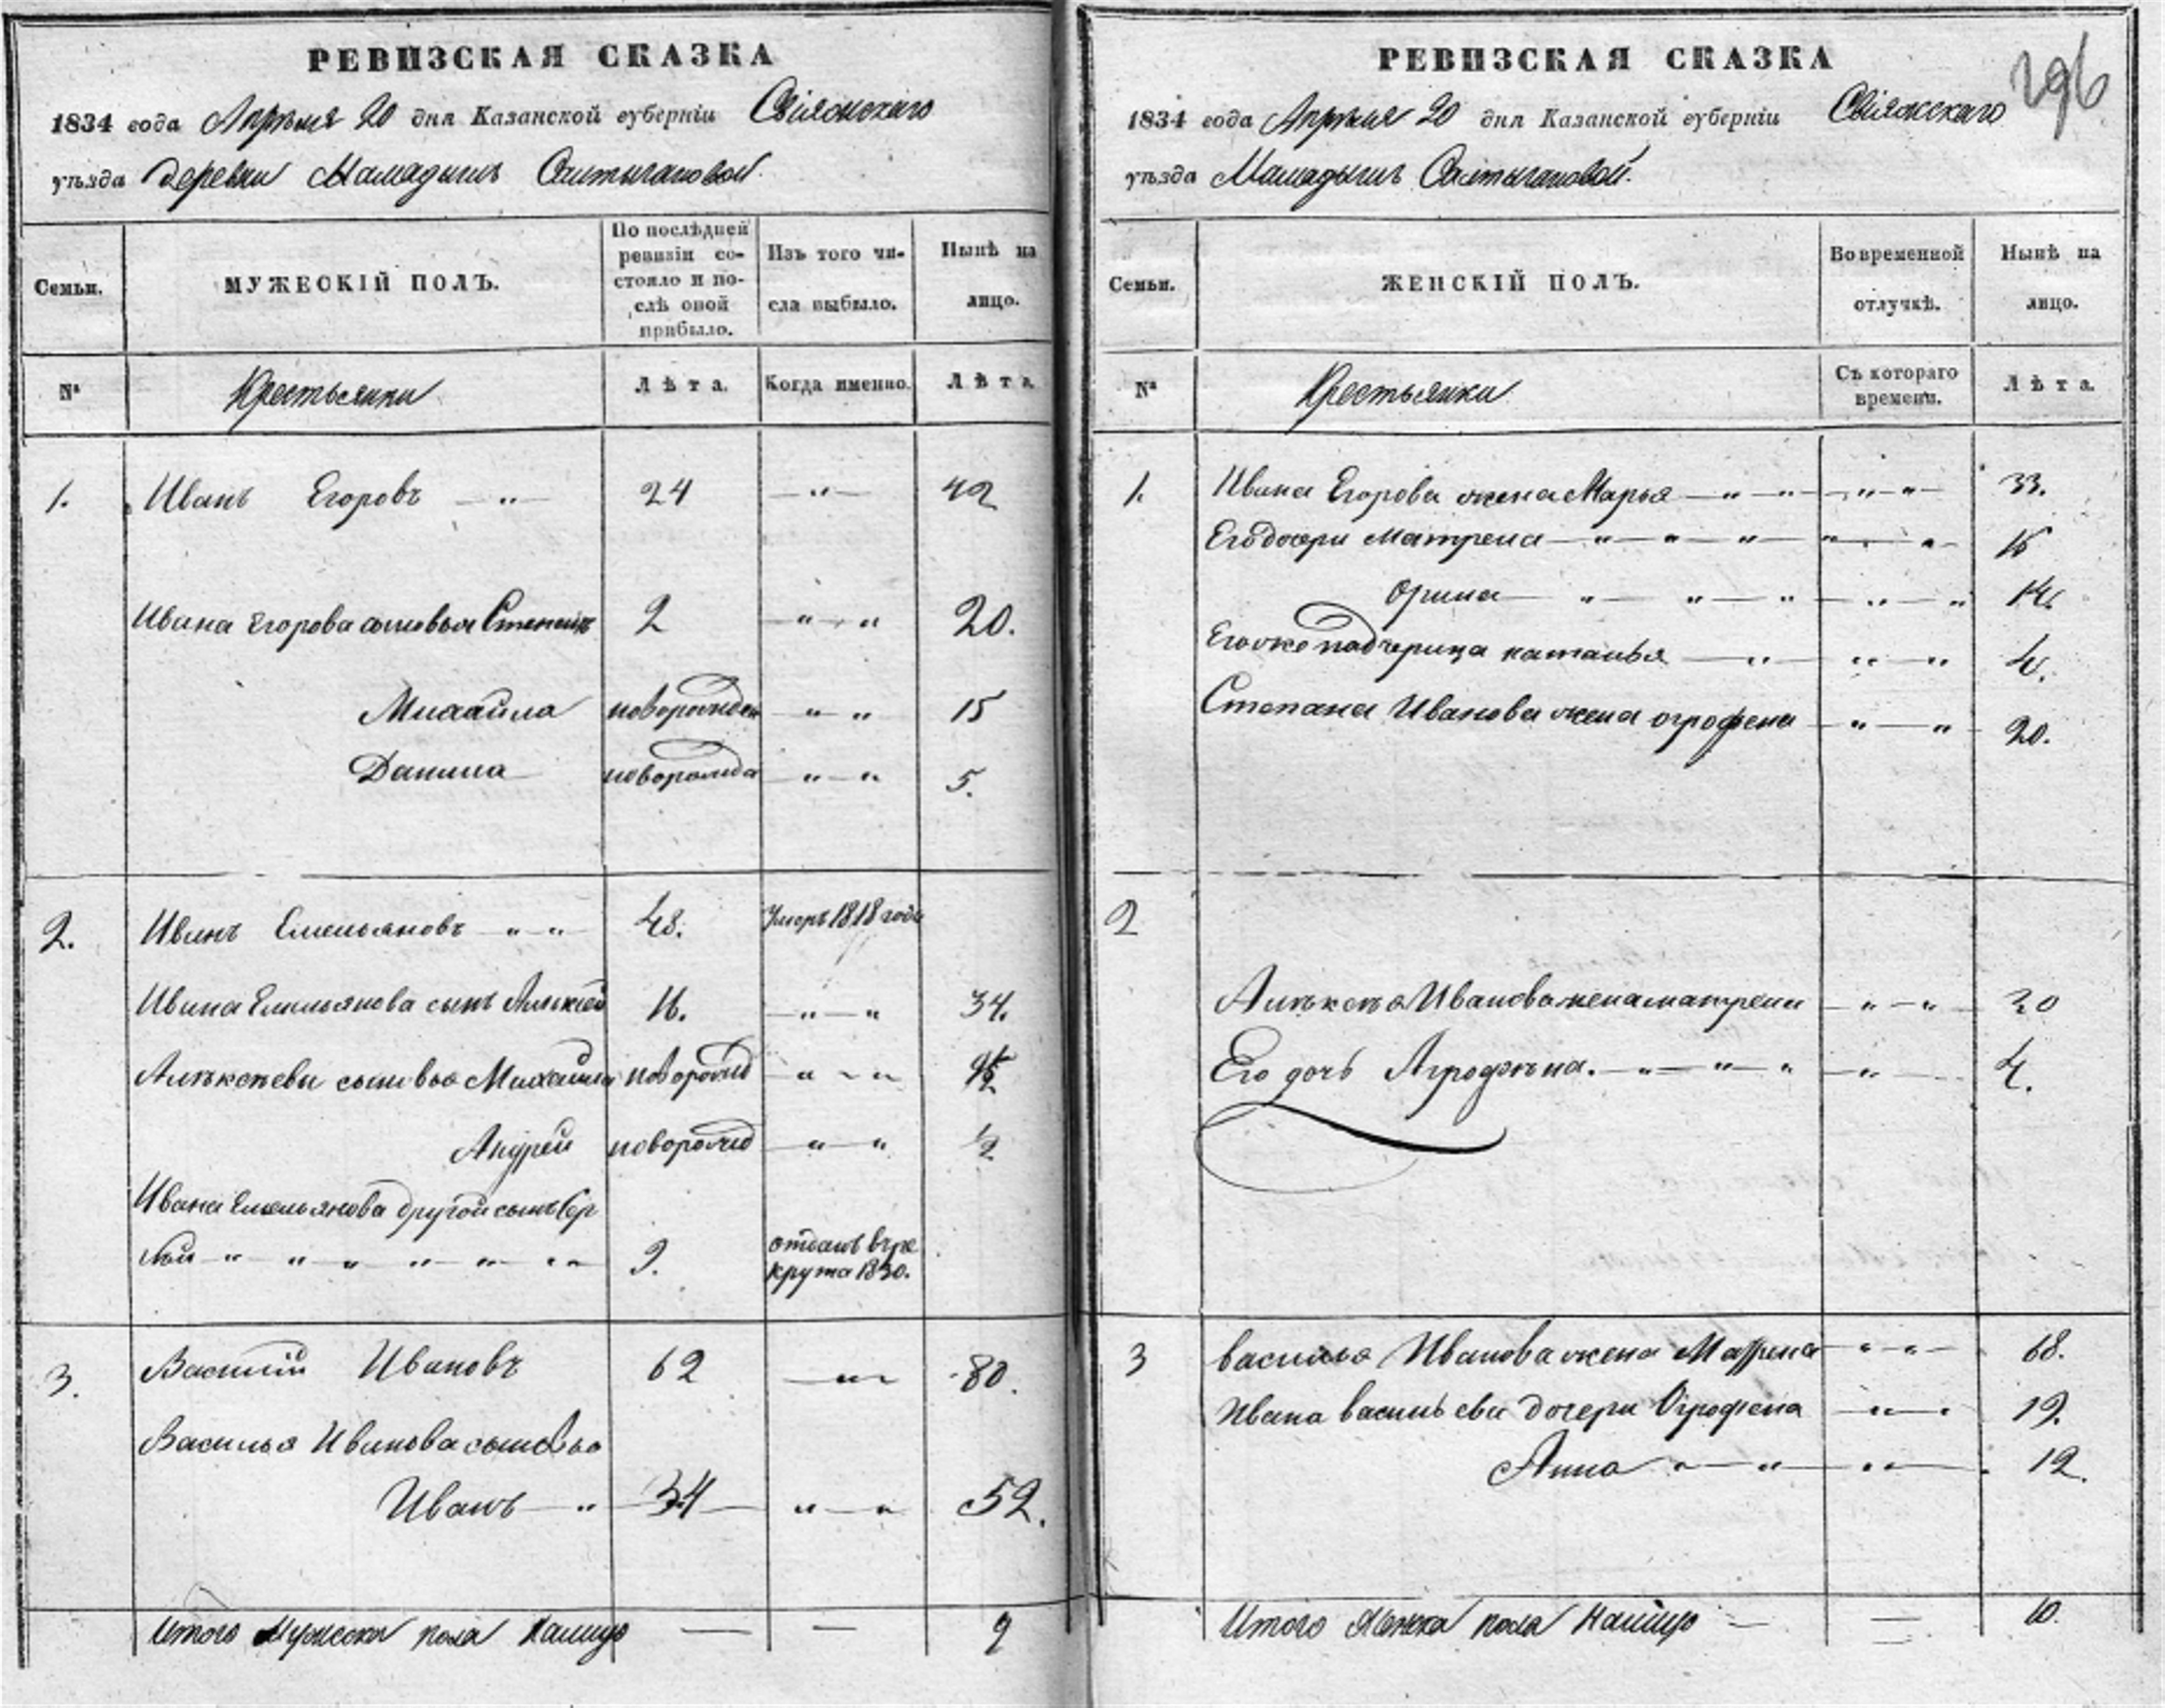 РЕВИЗСКАЯ СКАЗКА
1834 года Апреля 20 дня Казанской губерніи Свіяжскаго
уѣзда деревни Мамадышъ
Семьи.
МУЖЕСКІЙ ПОЛЪ.
По послѣдней
ревизіи со-
стояло и по-
слѣ оной
прибыло.
Изъ того чи-
сла выбыло.
Нынѣ на
лицо.
№
Крестьянки
Лѣта.
Когда именно.
Лѣта
1. Иванъ Егоровъ — „ — 24 — „ — 42
Ивана Егорова сыновья Степанъ 2 — „ — „ 20.
Михайла новорожден — „ — „ 15
Данила новорожд — „ — „ 5.
2. Иванъ Емельяновъ „ — „ 48. Умеръ 1818 года
Ивана Емельянова сынъ Алѣксей 16. — „ — „ 34.
Алѣксѣева сыновья Михайла новорожд — „ — „
Андрей новорожд — „ — „ 1/2
Ивана Емельянова другой сынъ Сер
гѣй „ — „ — „ — „ — „ — „ 9. отданъ въ ре
крута 1830.
3. Василій Ивановъ 62 — „ — 80.
Василья Иванова сыновья
Иванъ — „ 34 — „ — „ 52.
Итого Мужеска пола налицо — — 9
РЕВИЗСКАЯ СКАЗКА
296
1834 года Апреля 20 дня Казанской губерніи Свіяжскаго
уѣзда Мамадышъ
Семьи.
ЖЕНСКІЙ ПОЛЪ.
Во временной
отлучкѣ.
Нынѣ на
лицо.
№
Крестьянки
Съ котораго
времени.
Лѣта.
1. Ивана Егорова жена Марья — „ — „ — „ — „ — 33.
Его дочери Матрена — „ — „ — „ — „ — „ — 16
Орина — „ — „ — „ — „ — „ 14.
Его же падчерица наталья — „ — „ — „ 4.
Степана Иванова жена огрофена — „ — „ 20.
2
Алѣксѣя Иванова жена матрена — „ — „ 30
Его дочь Агрофѣна. — „ — „ — „ — „ — 4.
3 василья Иванова жена Маѳрена — „ — „ — 68.
Ивана васильева дочери Огрофена — „ — „ 19.
Анна — „ — „ — „ — 12.
Итого Женска пола налицо — — 10.